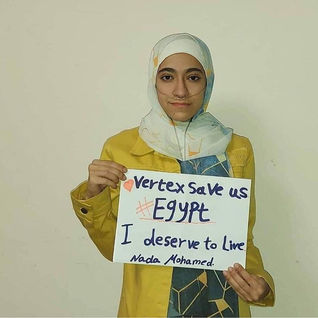 vertex save us
#Egypt
I deserve to Live
Nada Mohamed.